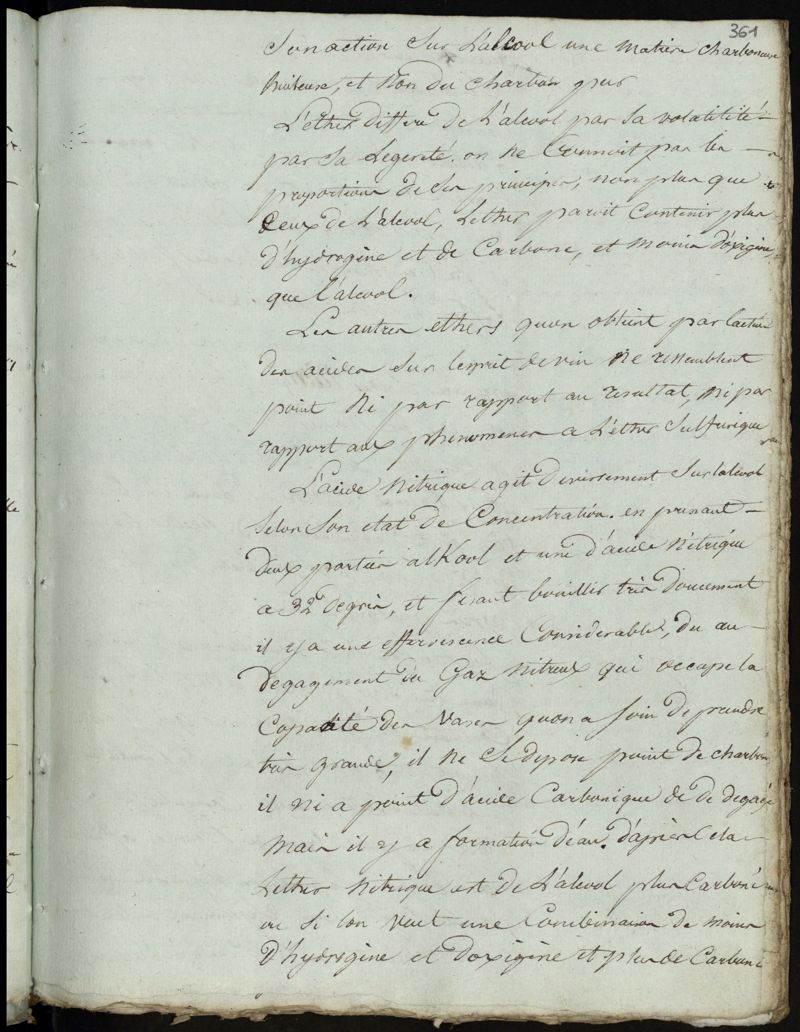 361
Son action Sur L'alcool une matiere charboneuse
huileuse, et Non du charbon pur
L'ether differe de L'alcool par sa volatilité
par Sa Legereté. on Ne Connoit pas les
proportions de Ses principes, non plus que
Ceux de L'alcool, Lether paroit Contenir plus
d'hydrogine et de Carbone, et moins d'oxigine,
que l'alcool.
Les autres ethers quon obtient par laction
des acides Sur lesprit de vin Ne ressemblent
point Ni par rapport au resultat, Ni par
rapport aux phenomenes a L'ether Sulfurique
L'acide Nitrique agit diversement Sur lalcool
Selon Son etat de Concentration. en prenant
deux parties alKool et une d'acide Nitrique
a 32 degrés, et fesant bouillir très doucement
il y a une effervescence Considerable, du au
degagement du Gaz Nitreux qui occupe la
Capacité des Vases quon a soin de prendre
très grands, il ne Se depose point de charbon
il ni a point d'acide Carbonique de degagé
Mais il y a formation d'eau. d'après Cela
Lether Nitrique est de L'alcool plus Carboné
ou Si lon veut une Combinaison de moins
d'hydrogine et doxigine et plus de Carbone